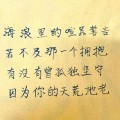 海浪里的喧嚣誓言
苦不及那一个拥抱
有没有曾孤独坚守
因为你的天荒地老